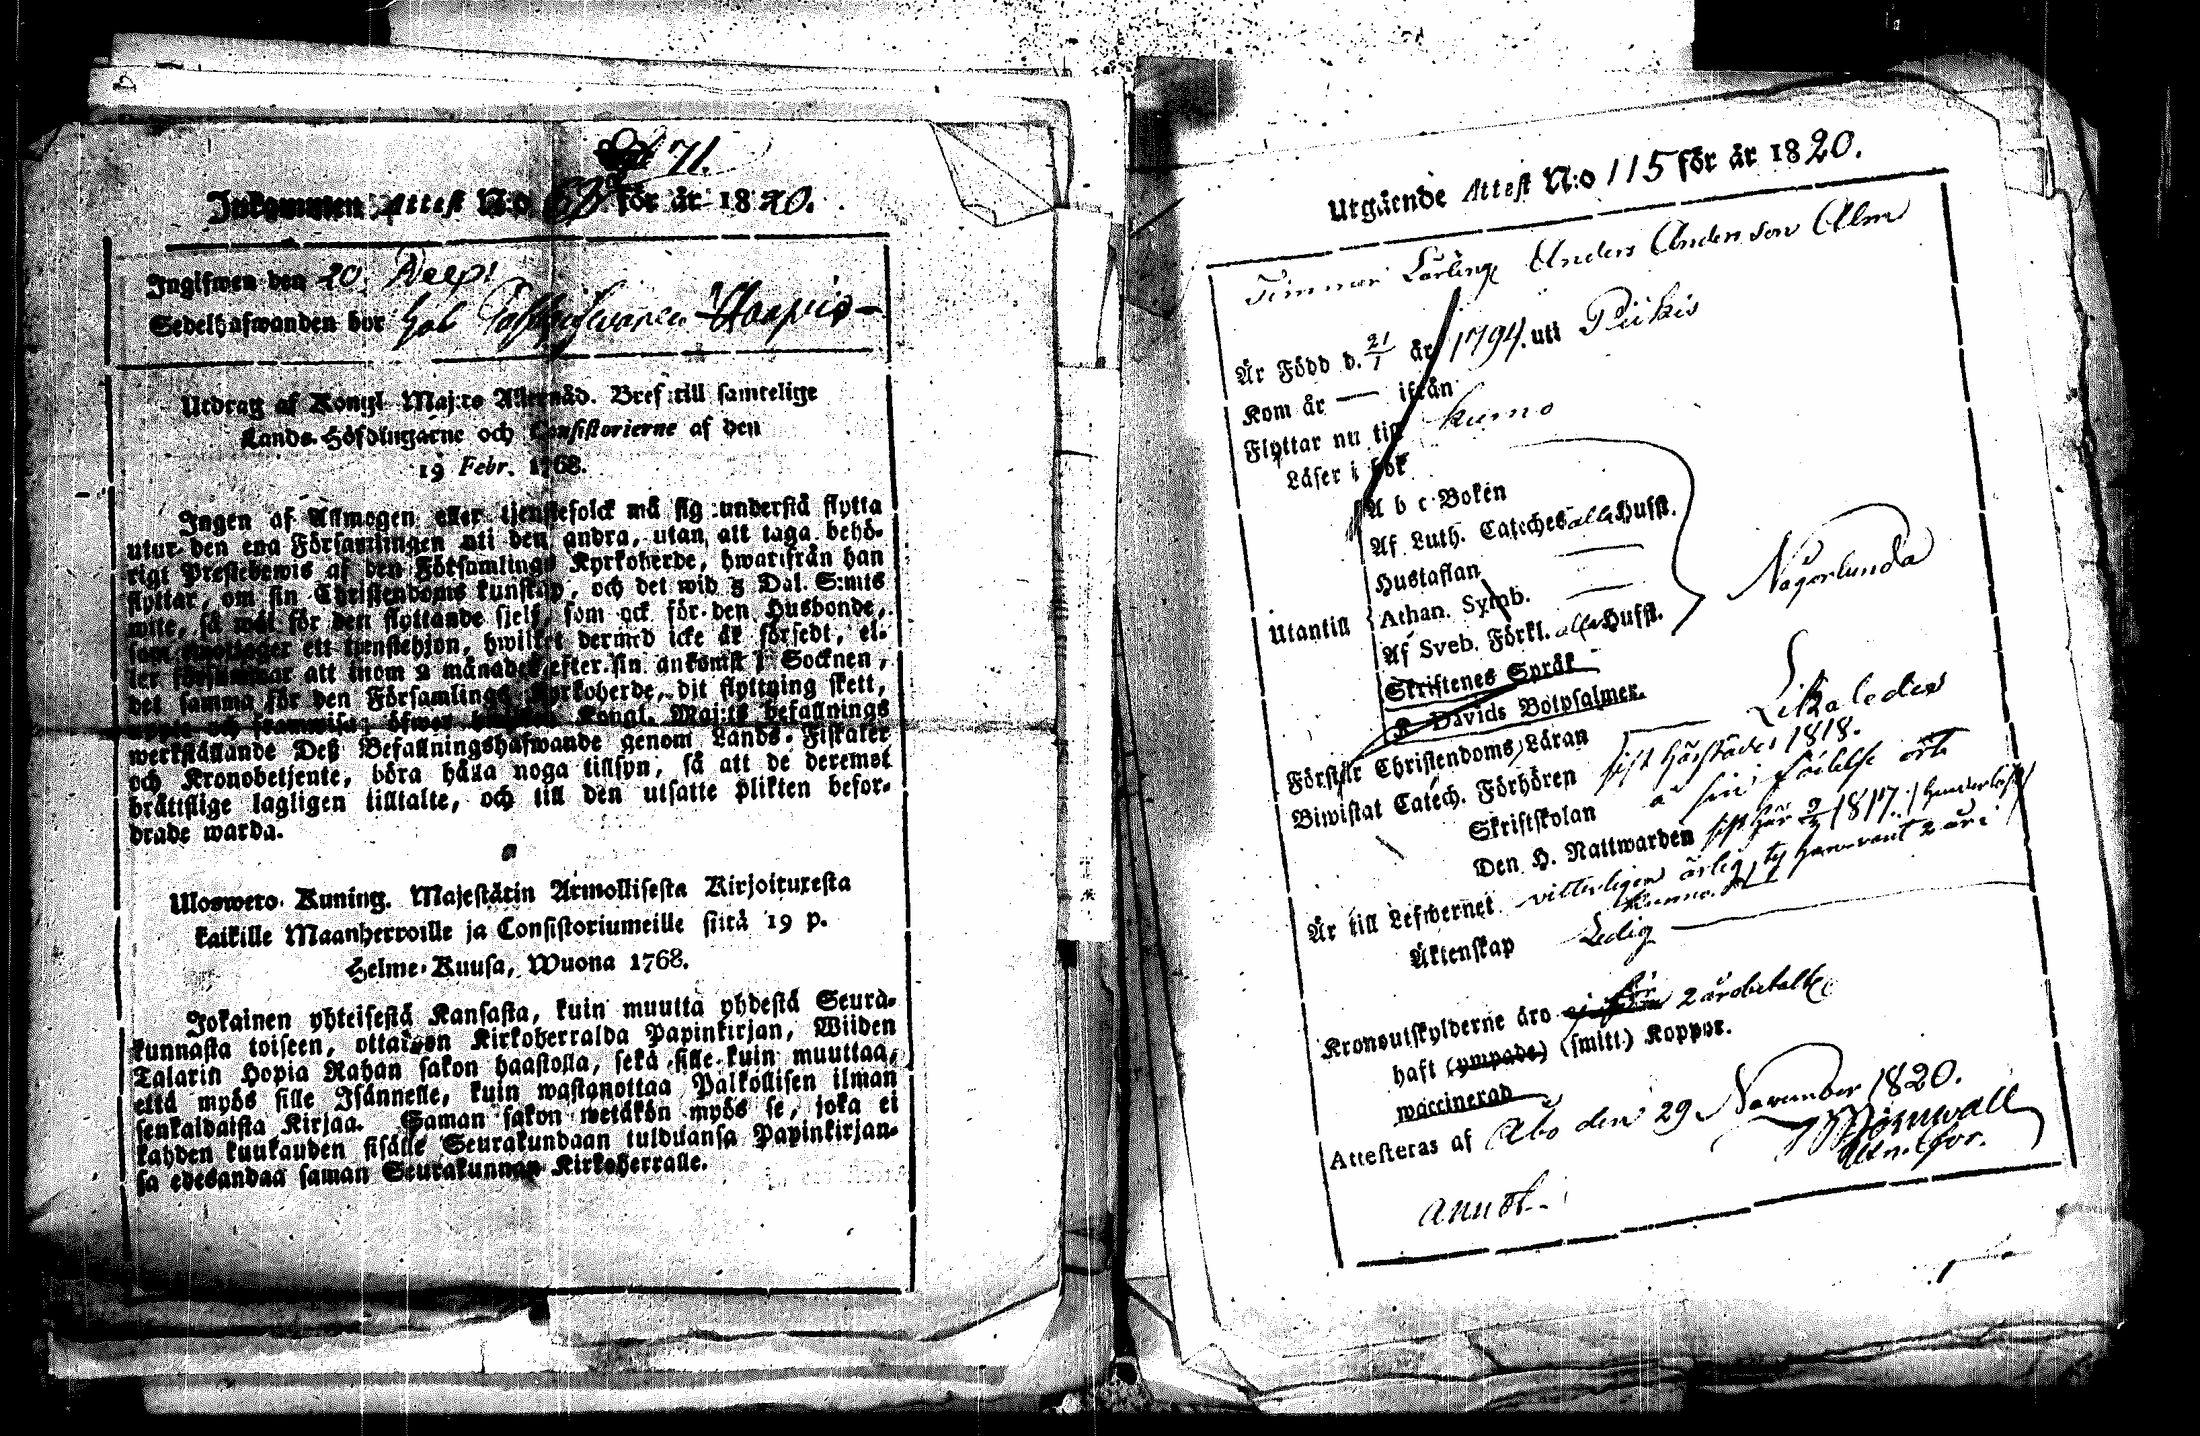 71.
Inkommen Attest N:o för år 1820.
Ingifwen den 20
Sedelhafwanden bor hos
Utdrag af Kongl. Maj:ts Allernåd. Bref till samtelige
Lands-Höfdingarne och Consistorierne af den
19 Febr. 1768.
Ingen af Allmogen eller tjenstefolck må sig understå flytta
utur den ena Församlingen uti den andra, utan att taga behö-
rigt Prestebewis af den Församlings Kyrkoherde, hwarifrån han
flyttar, om sin Christendoms kunskap, och det wid 5 Dal. S:mts
wite, så wäl för den flyttande sielf, som ock för den Husbonde,
som emottager ett tjenstehjon, hwilket dermed icke är försedt, el-
ler försummar att inom 2 månader efter sin ankomst i Socknen,
det samma för den Församlings Kyrkoherde, dit flyttning skett,
uppte och framwisa; öfwer hwilken Kongl. Maj:ts befallnings
werkställande Deß Befallningshafwande genom Lands-Fiskaler
och Kronobetjente, böra hålla noga tillsyn, så att de deremot
bråttslige lagligen tilltalte, och till den utsatte plikten befor-
drade warda.
Uloswero Kuning. Majestätin Armollisesta Kirjoituxesta
kaikille Maanherroille ja Consistoriumeille siitä 19 p.
Helme-Kuusa, Wuona 1768.
Jokainen yhteisestä Kansasta, kuin muutta yhdestä Seura-
kunnasta toiseen, ottakoon Kirkoherralda Papinkirjan, Wiiden
Talarin Hopia Rahan sakon haastolla, sekä sille kuin muuttaa,
että myös sille Isännelle, kuin wastanottaa Palkollisen ilman
senkaldaista Kirjaa. Saman sakon wetäkön myös se, joka ei
kahden kuukauden sisälle Seurakundaan tulduansa Papinkirjan-
sa edesandaa saman Seurakunnan Kirkoherralle.
Utgående Attest N:o 115 för år 1820.
Timmer Lärling Anders Andersson Alm
Är Född d. 21/1 år 1794. uti Piikis
Kom år — ifrån
Flyttar nu till Kumo
Läser i bok
A b c Boken
Af Luth. Cateches alla Hufst.
Hustaflan
Athan. Symb.
Utantill
Af Sveb. Förkl. alla Hufst.
Någorlunda
Skriftenes Språk
K. Davids Botpsalmer.
Förstår Christendoms Läran Likaledes
Biwistat Catech. Förhören sist härstädes 1818.
Skriftskolan å sin födelse ort
Den H. Nattwarden sist här 1817.
Är till Lefwernet vitterligen ärlig, ty han varit 2 år i
Kumo
Äktenskap Ledig
Kronoutskylderne äro för 2 år obetalte
haft (ympade) (smitt.) Koppor.
waccinerad
Attesteras af Åbo den 29 November 1820.